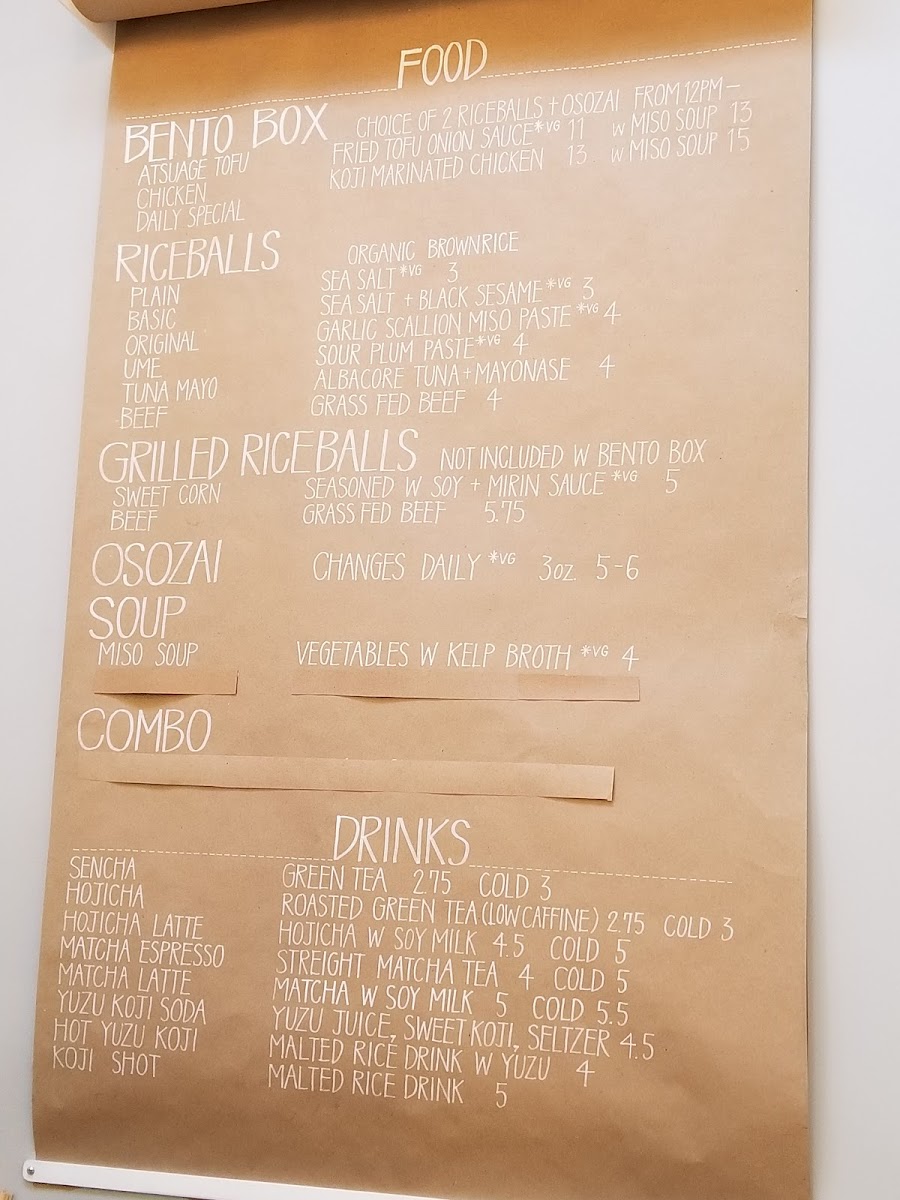 FOOD
BENTO BOX CHOICE OF 2 RICEBALLS + OSOZAI FROM 12PM –
ATSUAGE TOFU FRIED TOFU ONION SAUCE *VG 11 W MISO SOUP 13
CHICKEN KOJI MARINATED CHICKEN 13 W MISO SOUP 15
DAILY SPECIAL
RICEBALLS ORGANIC BROWNRICE
PLAIN SEA SALT *VG 3
BASIC SEA SALT + BLACK SESAME *VG 3
ORIGINAL GARLIC SCALLION MISO PASTE *VG 4
UME SOUR PLUM PASTE *VG 4
TUNA MAYO ALBACORE TUNA + MAYONASE 4
BEEF GRASS FED BEEF 4
GRILLED RICEBALLS NOT INCLUDED W BENTO BOX
SWEET CORN SEASONED W SOY + MIRIN SAUCE *VG 5
BEEF GRASS FED BEEF 5.75
OSOZAI CHANGES DAILY *VG 3oz. 5-6
SOUP
MISO SOUP VEGETABLES W KELP BROTH *VG 4
COMBO
DRINKS
SENCHA GREEN TEA 2.75 COLD 3
HOJICHA ROASTED GREEN TEA (LOW CAFFINE) 2.75 COLD 3
HOJICHA LATTE HOJICHA W SOY MILK 4.5 COLD 5
MATCHA ESPRESSO STREIGHT MATCHA TEA 4 COLD 5
MATCHA LATTE MATCHA W SOY MILK 5 COLD 5.5
YUZU KOJI SODA YUZU JUICE, SWEET KOJI, SELTZER 4.5
HOT YUZU KOJI MALTED RICE DRINK W YUZU 4
KOJI SHOT MALTED RICE DRINK 5